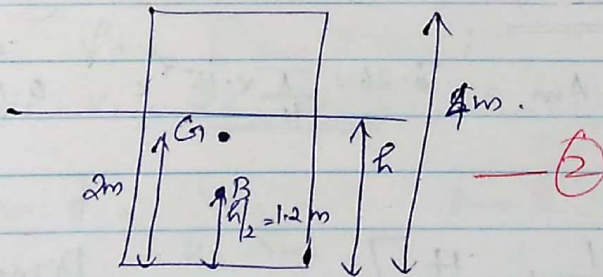 4m.
G
h
2m
B
h/2 = 1.2 m
— 2